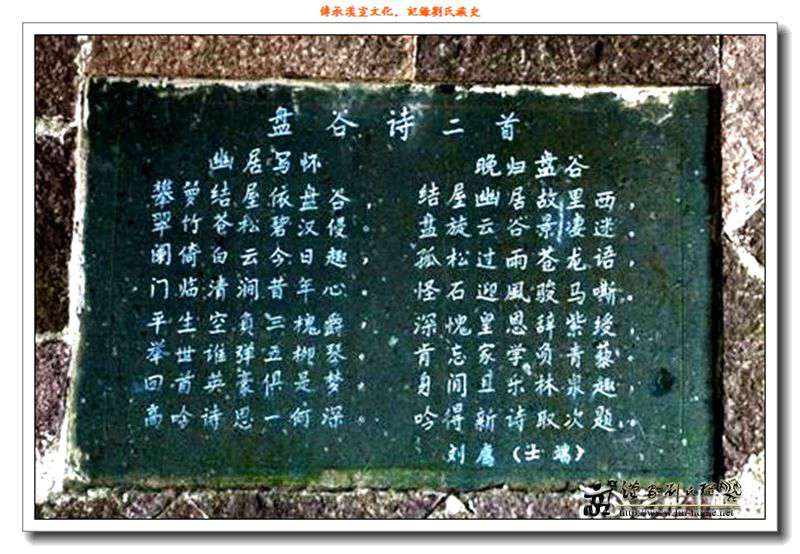 盘谷诗二首
幽居写怀
攀萝结屋依盘谷，
翠竹苍松碧汉侵。
阑倚白云今日趣，
门临清涧昔年心。
平生空负三槐爵，
举世谁弹五柳琴。
回首英豪俱是梦，
高吟诗思一何深。
晚归盘谷
结屋幽居故里西，
盘旋云谷景凄迷。
孤松过雨苍龙语，
怪石迎風骏马嘶。
深愧皇恩辞紫绶，
肯忘家学负青藜。
身闲且乐林泉趣，
吟得新诗取次题。
刘廌（士端）